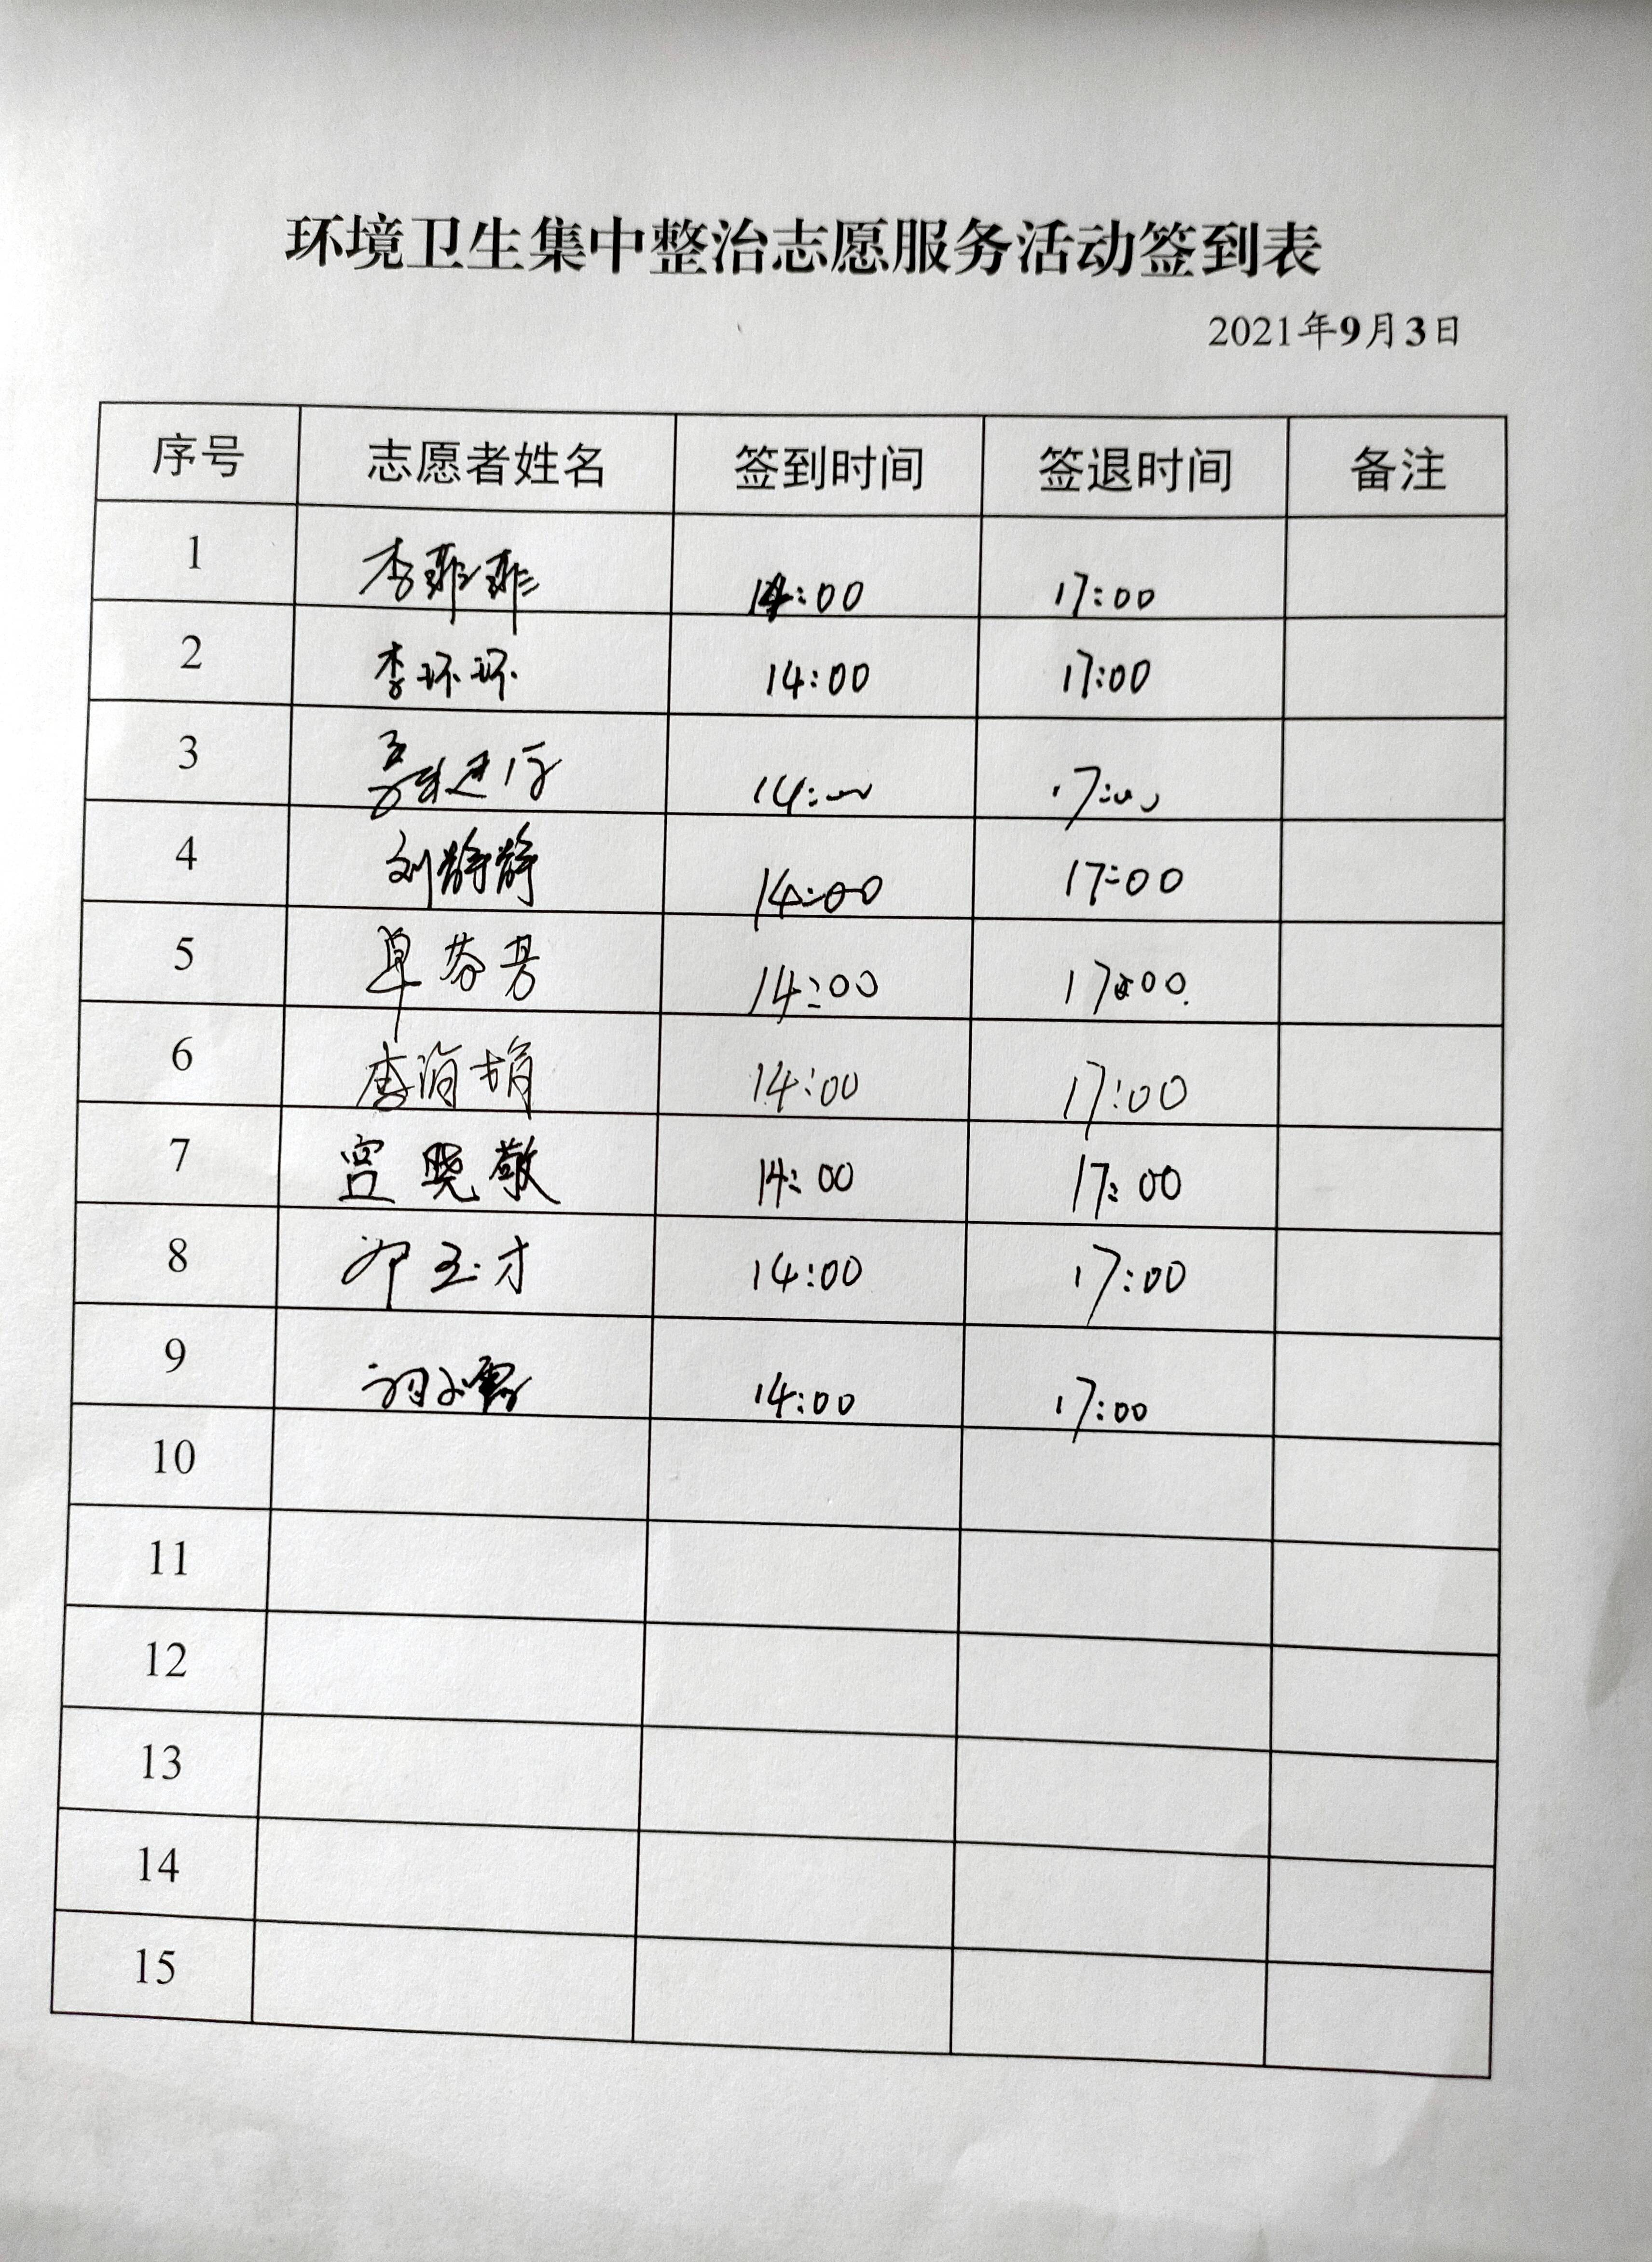 环境卫生集中整治志愿服务活动签到表
2021年9月3日
序号 志愿者姓名 签到时间 签退时间 备注
1 李菲菲 14:00 17:00
2 李环环 14:00 17:00
3 14:00 17:00
4 刘静静 14:00 17:00
5 14:00 17:00
6 14:00 17:00
7 宫晓敬 14:00 17:00
8 邓玉才 14:00 17:00
9 14:00 17:00
10
11
12
13
14
15